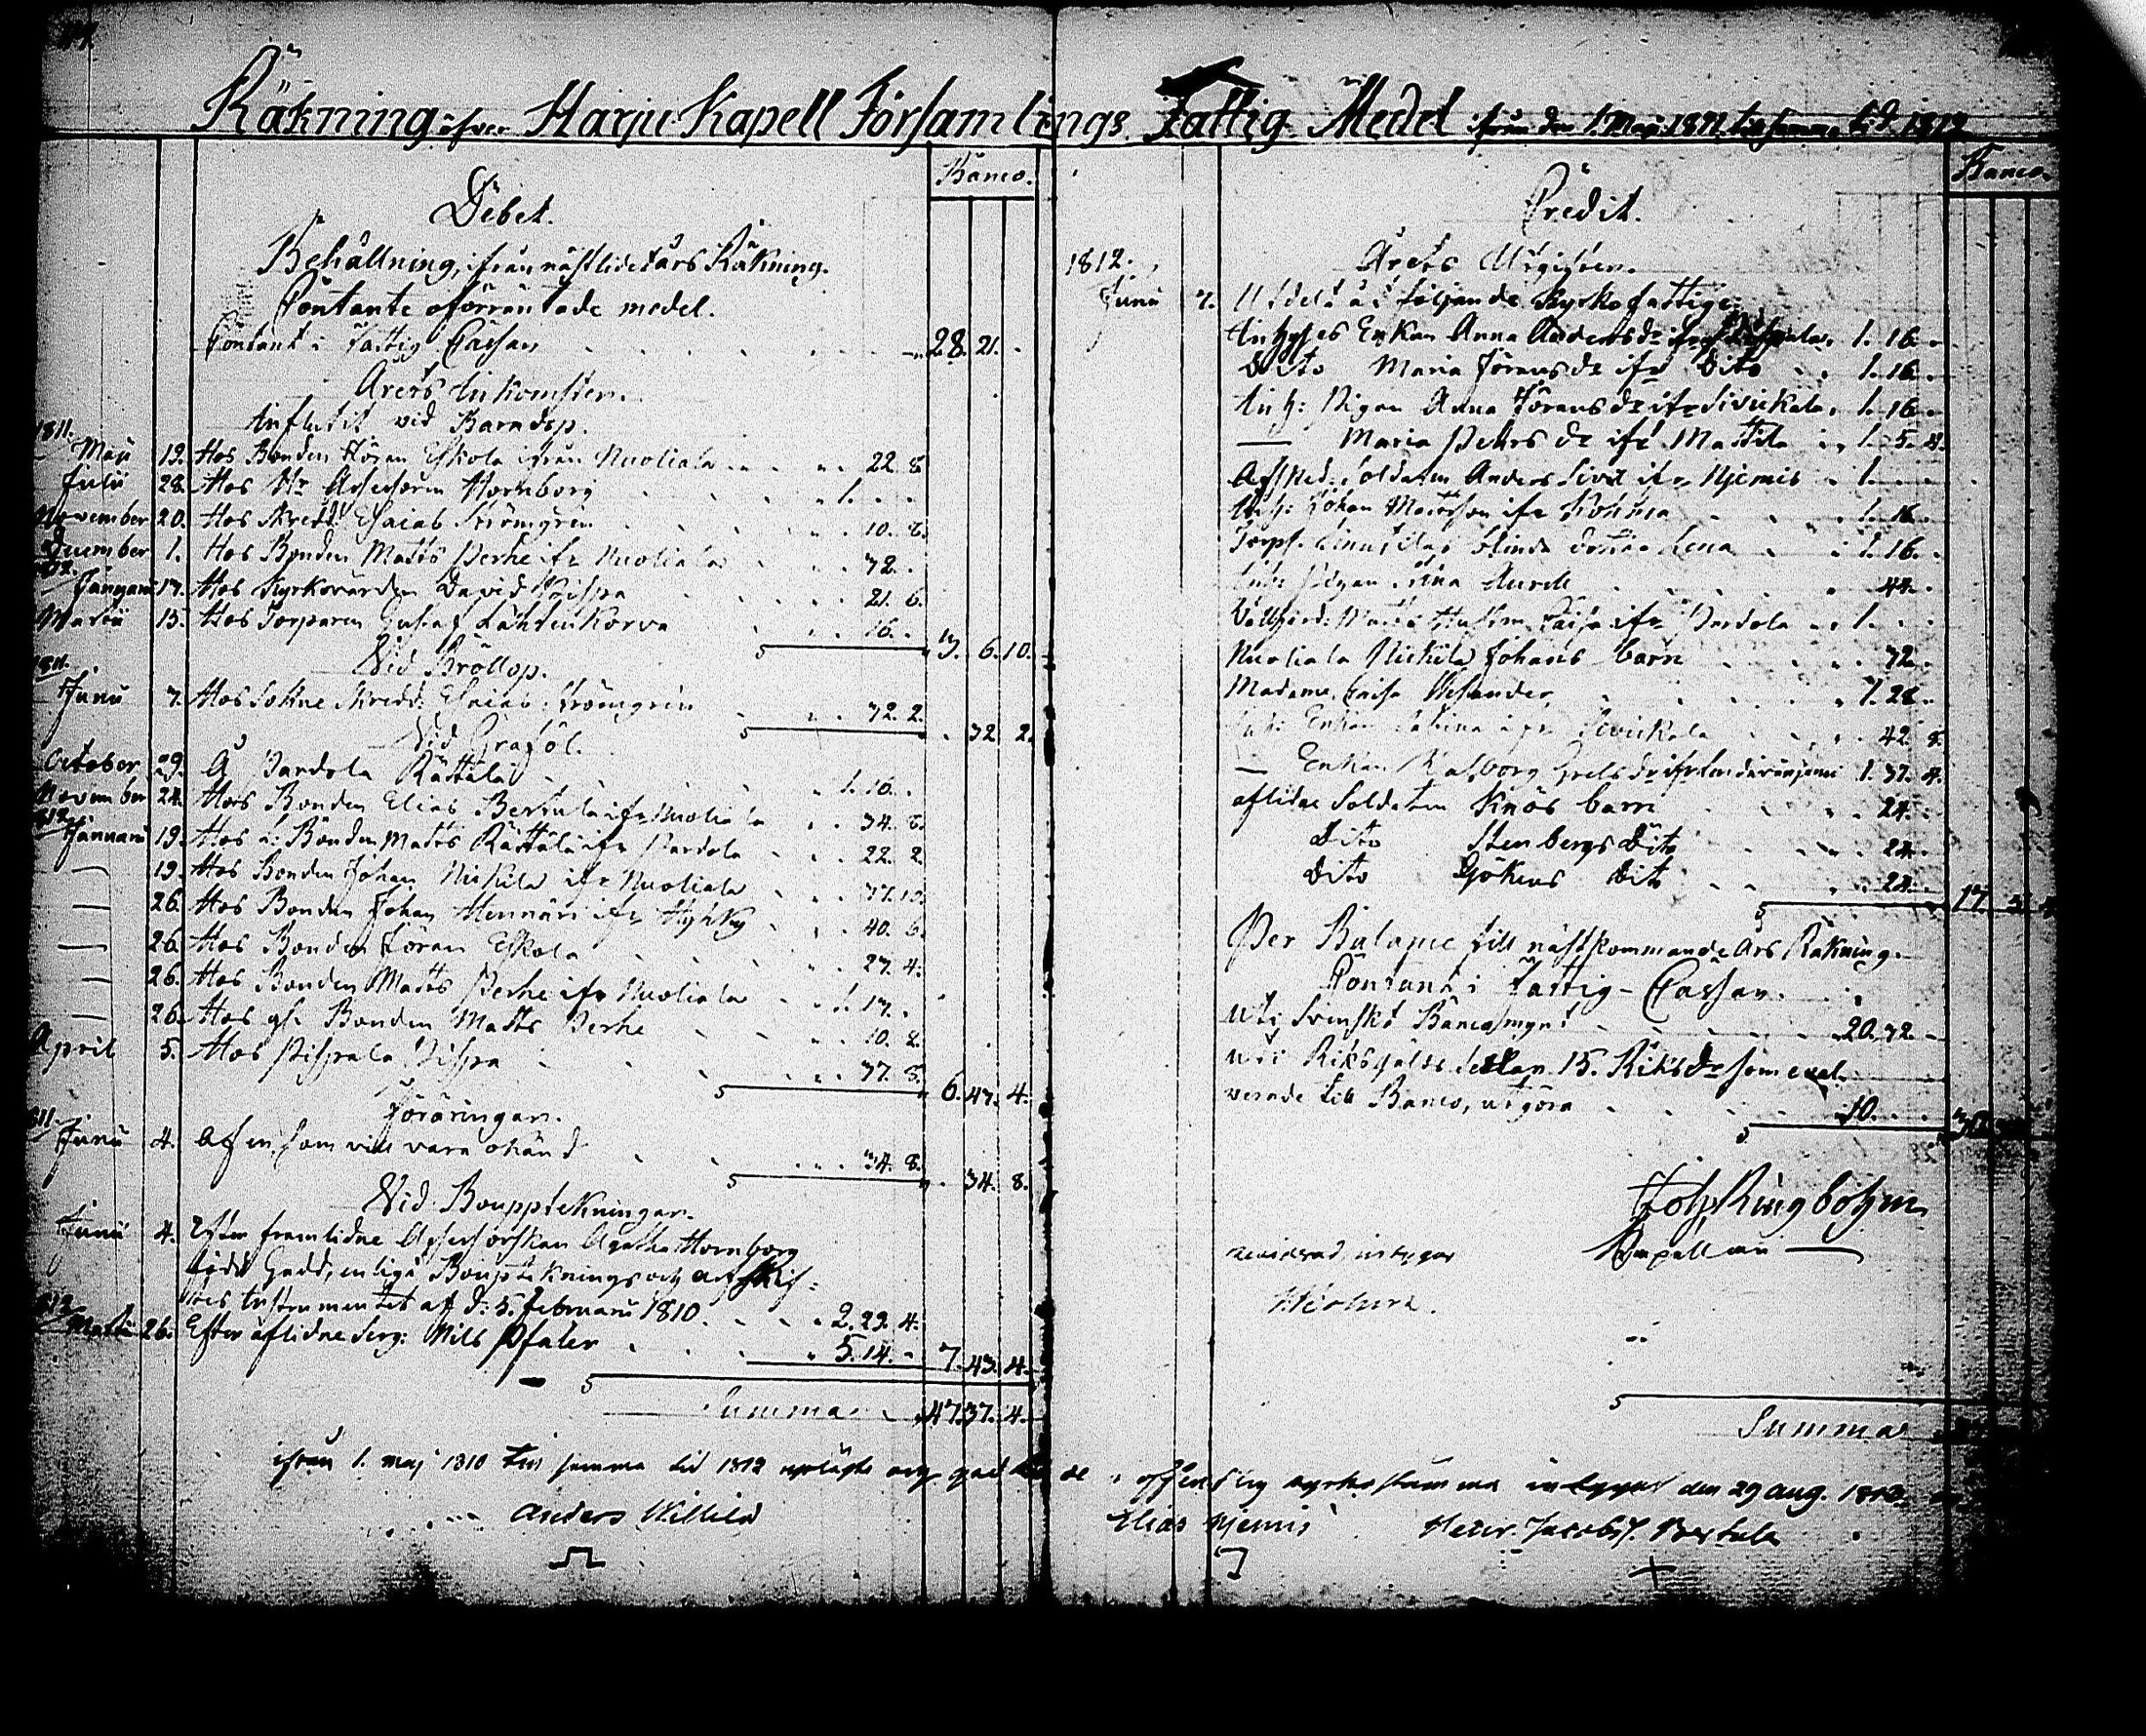 Räkning öfver Harju Kapell Församlings Fattig Medel ifrån den 1. Maji 1811 till samma tid 1812
Banco.
Debet.
Behållning, ifrån nästlidet års Räkning.
Contante oförräntade medel.
Contant i Fattig Cassan 28. 21.
Årets Inkomster.
Influtit vid Barndop.
1811.
Maji 19. Hos Bonden Jöran Eskola ifrån Nuoliala 22. 8
Julii 28. Hos Hr Assessoren Hornborg 1.
November 20. Hos Skredd. Esaias Strömgren 10. 8.
December 1. Hos Bonden Matts Perhe ifr Nuoliala 32.
1812.
Januarii 17. Hos Kyrkovärden David Pispa 21. 6.
Martii 15. Hos Torparen Gustaf Lahtenkorva 16.
3. 6. 10.
Vid Bröllop.
1811.
Junii 7. Hos Sokne Skredd: Esaias Strömgren 32. 2.
32. 2.
Vid Graföl.
October 29. Å Pardola Rättälä 1. 16.
November 24. Hos Bonden Elias Bertula ifr Nuoliala 34. 8.
1812
Januarii 19. Hos d: Bonden Matts Rättälä ifr Pardola 22. 2.
19. Hos Bonden Johan Nickilä ifr Nuoliala 37. 10.
26. Hos Bonden Johan Mennäri ifr Hyhky 40. 6.
26. Hos Bonden Jöran Eskola 27. 4.
26. Hos Bonden Matts Perhe ifr Nuoliala 1. 17.
26. Hos gl. Bonden Matts Perhe 10. 8.
April 5. Hos Pispala Pispa 37. 8.
6. 47. 4.
Föräringar.
1811.
Junii 4. Af en, som vill vara okänd 34. 8.
34. 8.
Vid Bouppteckningar.
Junii 4. Efter framlidne Assessorskan Agatha Hornborg
född Gadd, enligt Bouptecknings och arfskif-
tes Instrumentet af d: 5. Februarii 1810 2. 29. 4.
1812
Martii 26. Efter aflidne Serg: Nils Pfaler 5. 14.
7. 43. 4.
Summa 47. 37. 4.
Banco.
Credit.
1812.
Årets Utgifter.
Junii 7. Utdelt åt följande Kyrko fattige
Inhyses Enkan Anna Andersdr ifr Pispala 1. 16.
Dito Maria Jöransdr ifr Dito 1. 16.
Inh: Pigan Anna Jöransdr ifr Livickala 1. 16.
Maria Pehrs dr ifr Mattila 1. 5.
Afsked: Soldaten Anders Sivil ifr Njemis 1.
Inh: Johan Mattsson ifr 1. 16.
Torpf. blinda Lena 1. 16.
Inh: Pigan Stina 44.
Vallhjord: Matts ifr Pardola 1.
Nuoliala Nickilä Johans barn 32.
Madame Caisa Vesander 1. 28.
Inh: Enkan Sabina ifr Livickala 42. 8.
Enkan Walborg Grelsdr ifr 1. 37. 4.
aflidne Soldaten Knös barn 24.
Dito Stenbergs Dito 24.
Dito Gökens Dito 24.
17.
Per Balance till nästkommande Års Räkning.
Contant i Fattig-Cassan.
Uti Svenskt Bancomynt 20. 32.
Uti Riksgälds Sedlar 15. Riksdr som eval-
verade till Banco, utgöra 10.
Joh. Ringbohm
Kapellan
reviderad intygar
Summa
ifrån 1. maj 1810 till samma tid 1812 upläste och i offentlig kyrkostämma intygas den 29 aug. 1812.
Anders Willilä Elias Njemis Henr. Jacobss. Bertula